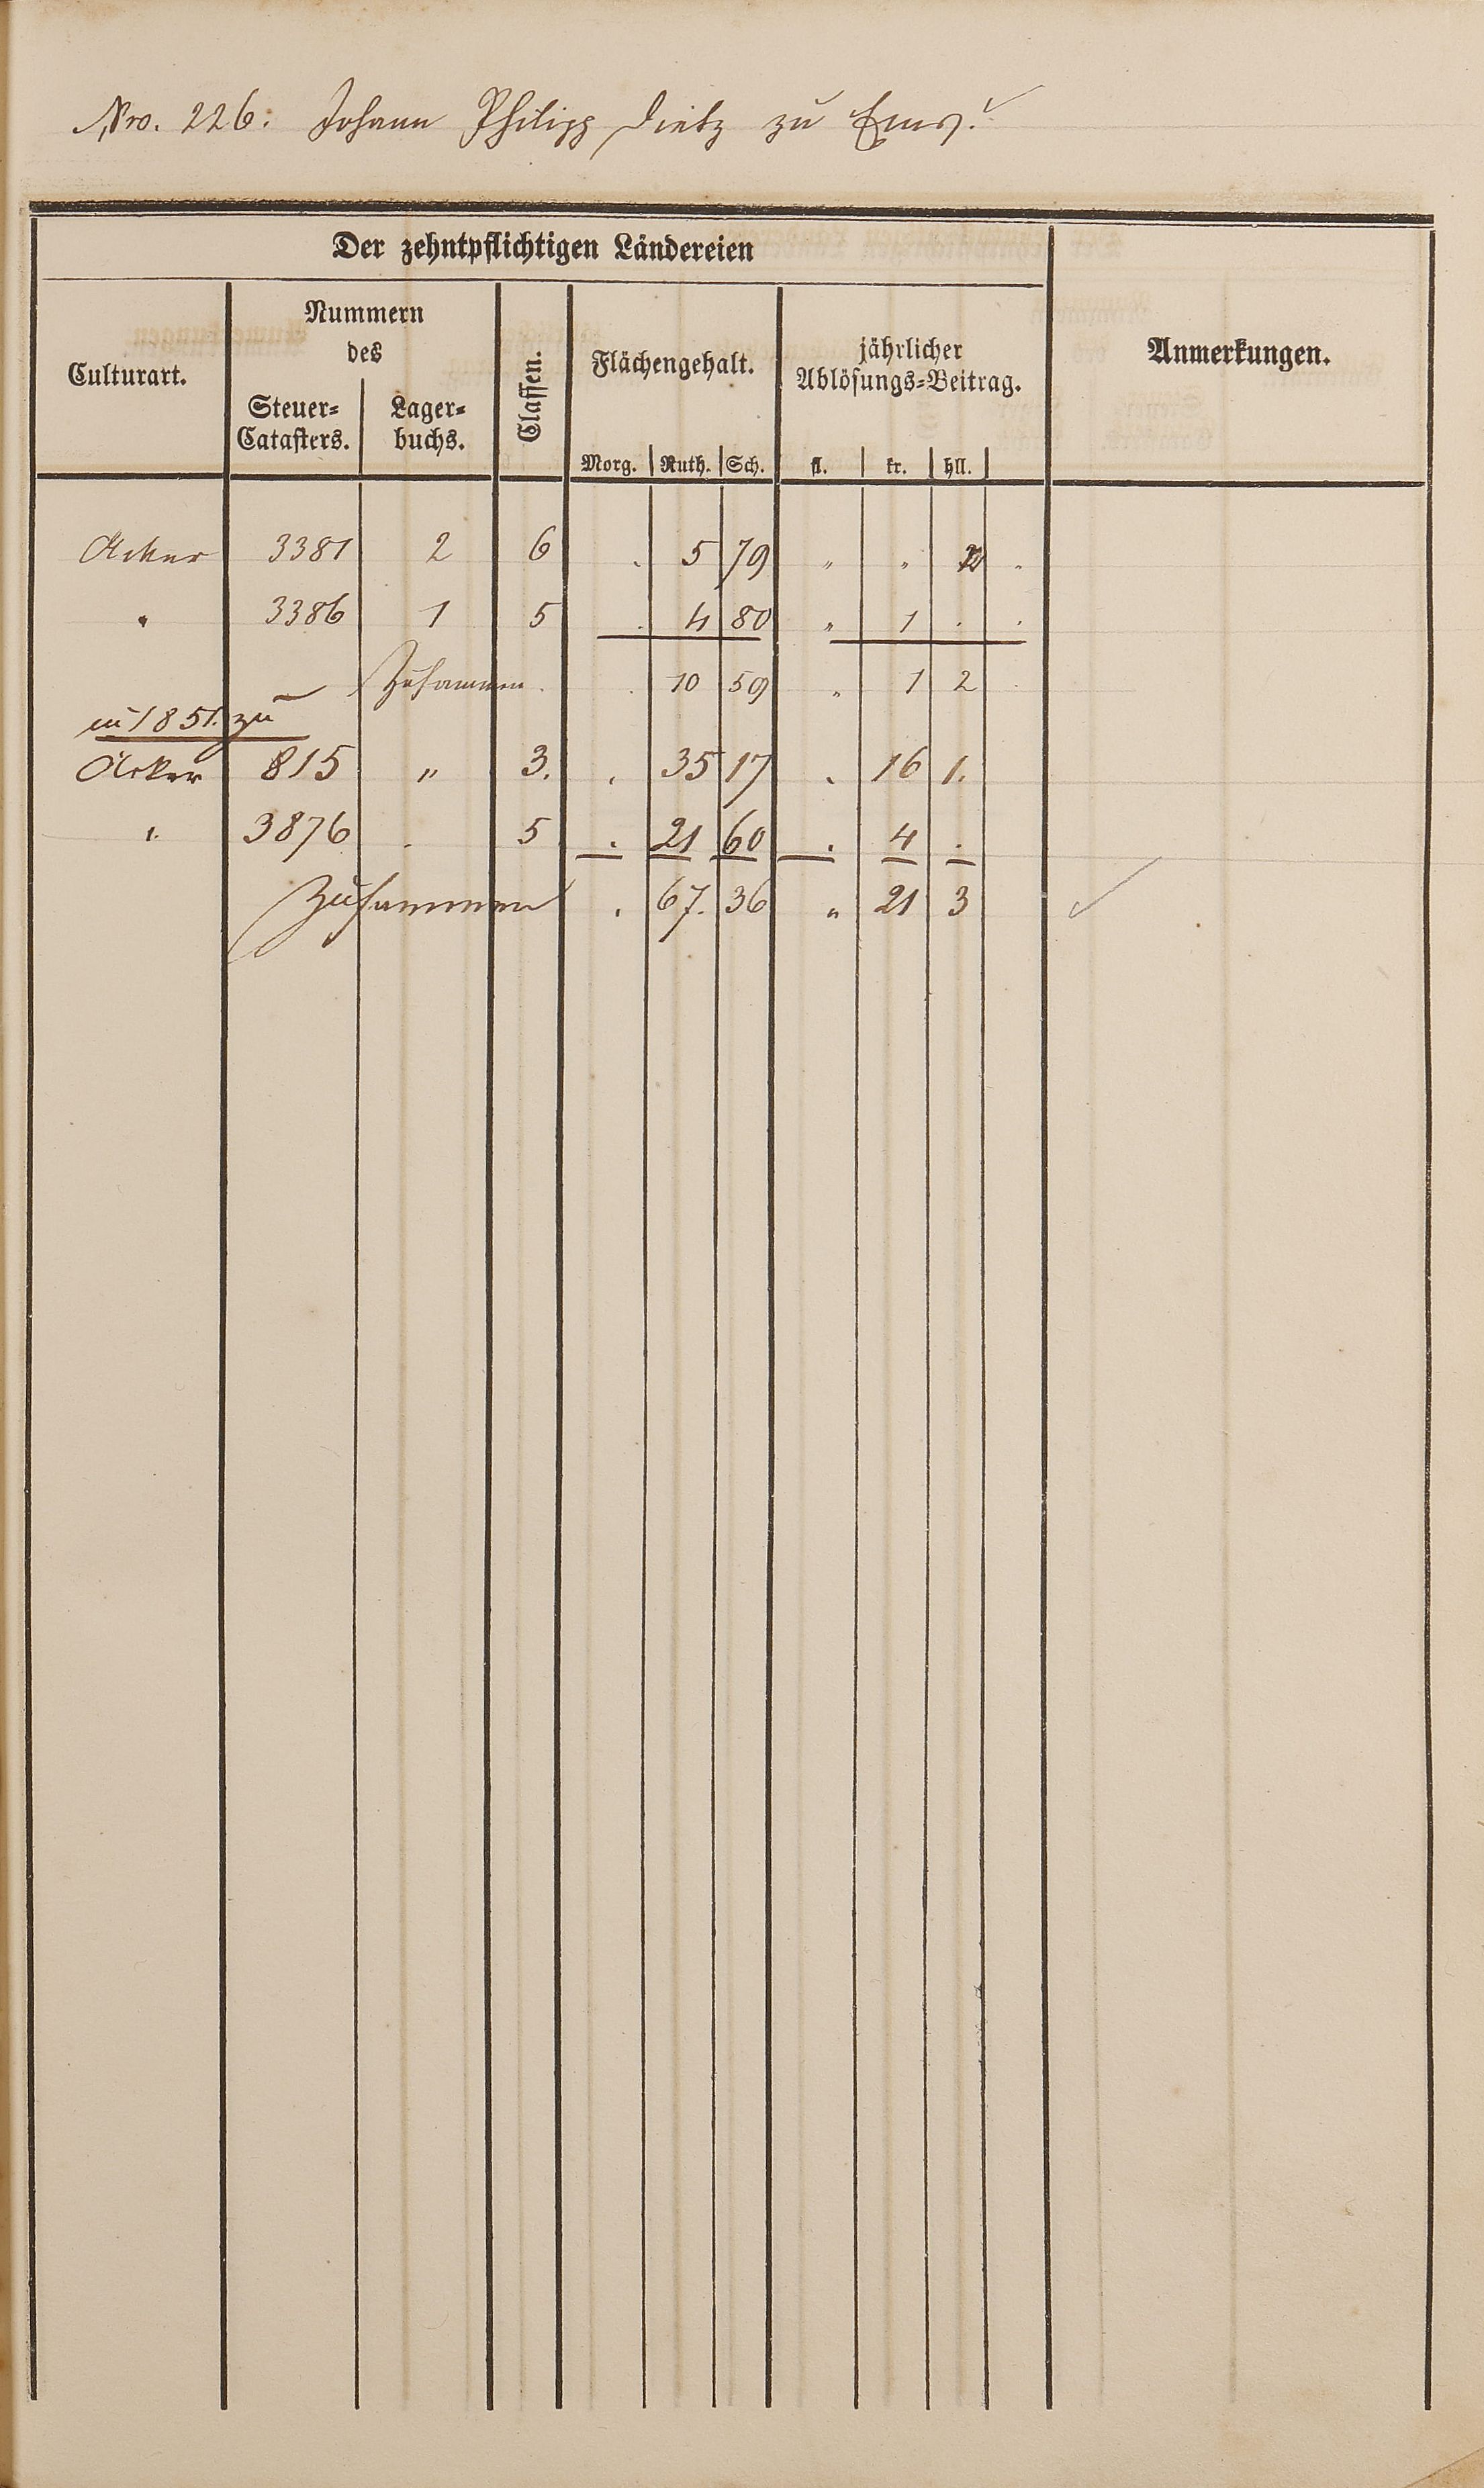 Nro. 226. Johann Philipp Dietz zu Ems.
Der zehntpflichtigen Ländereien
Culturart.
Nummern
des
Steuer=
Catasters.
Lager=
buchs.
Classen.
Flächengehalt.
Morg. Ruth. Sch.
jährlicher
Ablösungs=Beitrag.
fl. kr. hll.
Anmerkungen.
Acker 3381 2 6 . 5 79 " " 2 .
" 3386 1 5 . 4 80 " 1 . .
Zusammen . . 10 59 " 1 2 .
in 1851. zu
Acker 815 " 3. . 35 17 . 16 1.
" 3876 . 5 . 21 60 . 4 .
Zusammen . 67. 36 " 21 3